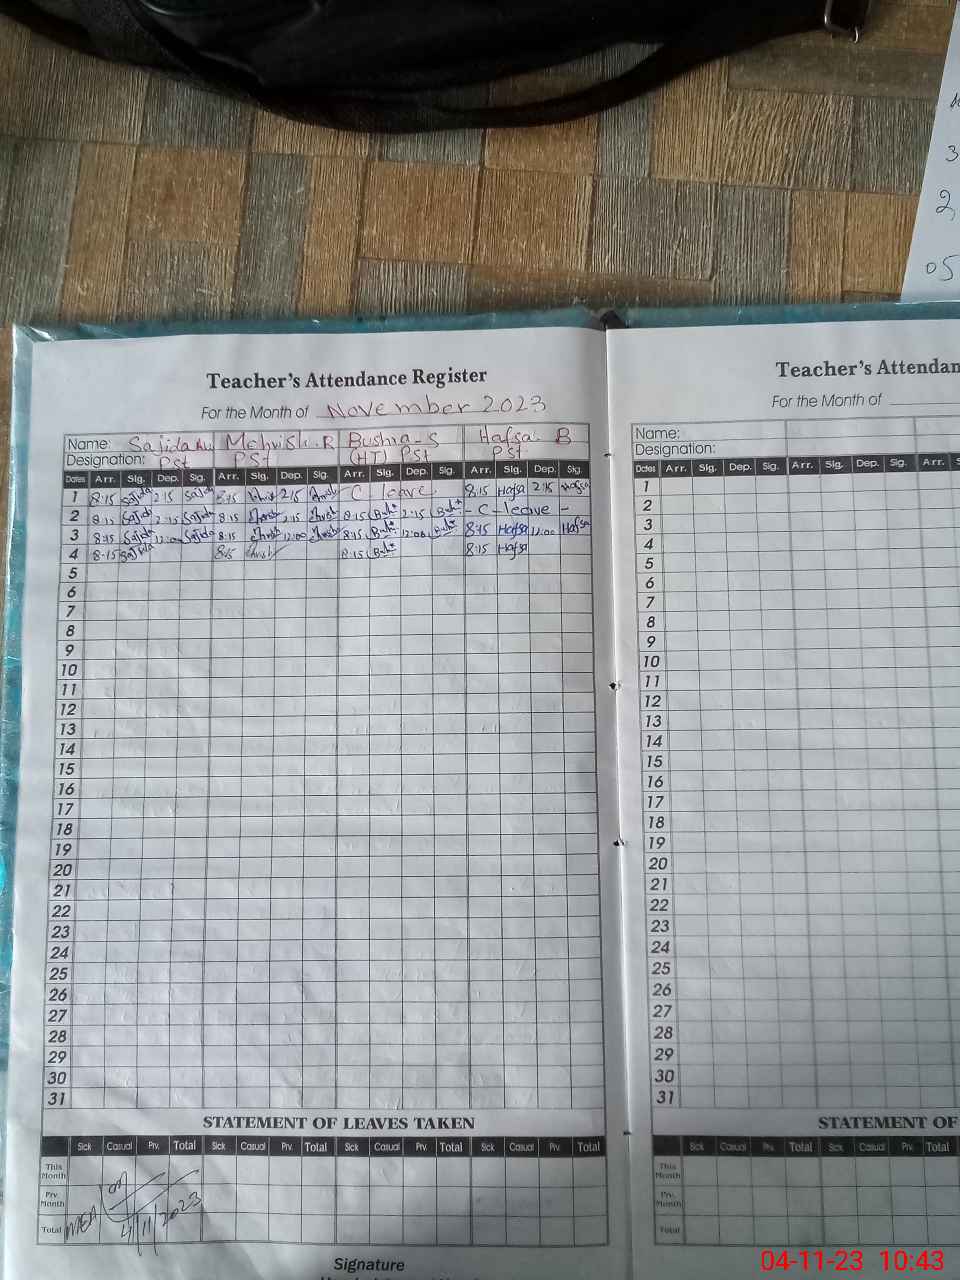 3
2,
05
Teacher's Attendance Register
For the Month of November 2023
Name: Sajida Mehvish.R Bushra-S Hafsa B
Designation: Pst PSt (HT) PSt PSt
Dates Arr. Sig. Dep. Sig. Arr. Sig. Dep. Sig. Arr. Sig. Dep. Sig. Arr. Sig. Dep. Sig.
1 8:15 Sajida 2:15 Sajida 8:15 2:15 C leave 8:15 Hafsa 2:15 Hafsa
2 8:15 Sajida 2:15 Sajida 8:15 2:15 8:15 2:15 - C - leave -
3 8:15 Sajida 12:00 Sajida 8:15 12:00 8:15 12:00 8:15 Hafsa 12:00 Hafsa
4 8:15 Sajida 8:15 8:15 8:15 Hafsa
5
6
7
8
9
10
11
12
13
14
15
16
17
18
19
20
21
22
23
24
25
26
27
28
29
30
31
STATEMENT OF LEAVES TAKEN
Sick Casual Prv. Total Sick Casual Prv. Total Sick Casual Prv. Total Sick Casual Prv. Total
This Month
Prv. Month
Total
MEA
4/11/2023
Signature
Teacher's Attendan
For the Month of
Name:
Designation:
Dates Arr. Sig. Dep. Sig. Arr. Sig. Dep. Sig. Arr. S
1
2
3
4
5
6
7
8
9
10
11
12
13
14
15
16
17
18
19
20
21
22
23
24
25
26
27
28
29
30
31
STATEMENT OF
Sick Casual Prv. Total Sick Casual Prv. Total
This Month
Prv. Month
Total
04-11-23 10:43